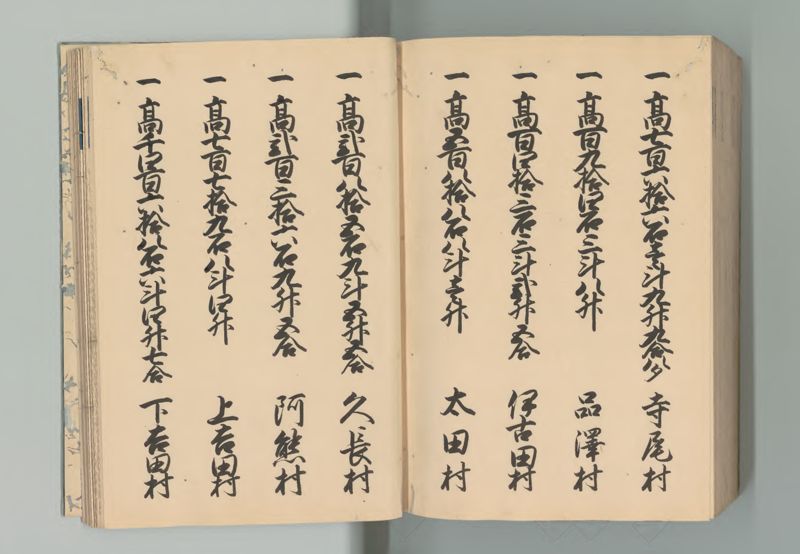 一 高七百六拾六石壱斗九升九合八夕 寺尾村
一 高百九拾四石三斗八升 品澤村
一 高百四拾三石三斗弐升五合 伊古田村
一 高五百八拾八石八斗壱升 太田村
一 高弐百八拾五石九斗五升五合 久長村
一 高弐百三拾六石九升五合 阿熊村
一 高七百七拾九石八斗四升 上吉田村
一 高千四百六拾八石六斗四升七合 下吉田村